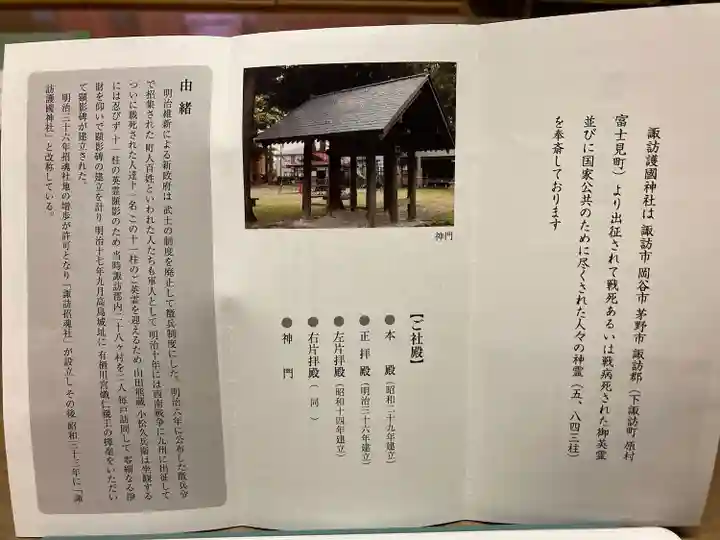 諏訪護國神社は 諏訪市 岡谷市 茅野市 諏訪郡（下諏訪町 原村
富士見町）より出征されて戦死あるいは戦病死された御英霊
並びに国家公共のために尽くされた人々の神霊（五、八四三柱）
を奉斎しております
神門
【ご社殿】
●本 殿（昭和二十九年建立）
●正拝殿（明治三十六年建立）
●左片拝殿（昭和十四年建立）
●右片拝殿（ 同 ）
●神 門
由緒
明治維新による新政府は 武士の制度を廃止して徴兵制度にした。明治六年に公布した徴兵令
で招集された 町人百姓といわれた人たちも軍人として 明治十年には西南戦争に九州に出征して
ついに戦死された人達十一名 この十一柱のご英霊を迎えるため 山田熊蔵 小松久兵衛は坐視する
には忍びず 十一柱の英霊顕彰のため 当時諏訪郡内二十八ヶ村を二人 毎戸訪問して 零細なる浄
財を仰いで顕影碑の建立を計り 明治十七年九月高島城址に 有栖川宮幟仁親王の揮毫をいただい
て顕影碑が建立された。
明治三十六年招魂社地の増歩が許可となり「諏訪招魂社」が設立し その後 昭和三十三年に「諏
訪護國神社」と改称している。